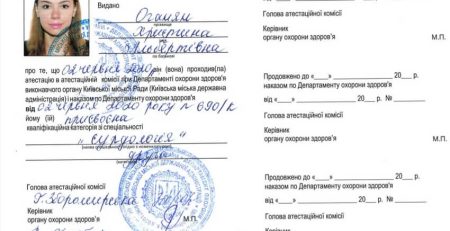 Видано Оганян
прізвище
Христина
Робертівна
про те, що 02 червня 2020р він (вона) проходив(ла)
атестацію в атестаційній комісії при Департаменті охорони здоров'я
виконавчого органу Київської міської Ради (Київська міська державна
адміністрація) і наказом по Департаменту охорони здоров'я
від 02 червня 2020 року № 690/к
йому (їй) присвоєна
кваліфікаційна категорія зі спеціальності
"сурдологія"
друга
Голова атестаційної комісії
Керівник
органу охорони здоров'я М.П.
Голова атестаційної комісії
Керівник
органу охорони здоров'я М.П.
Продовжено до «___» 20___ р.
наказом по Департаменту охорони здоров'я
Голова атестаційної комісії
Керівник
органу охорони здоров'я М.П.
Продовжено до «___» 20___ р.
наказом по Департаменту охорони здоров'я
Голова атестаційної комісії
Керівник
органу охорони здоров'я М.П.